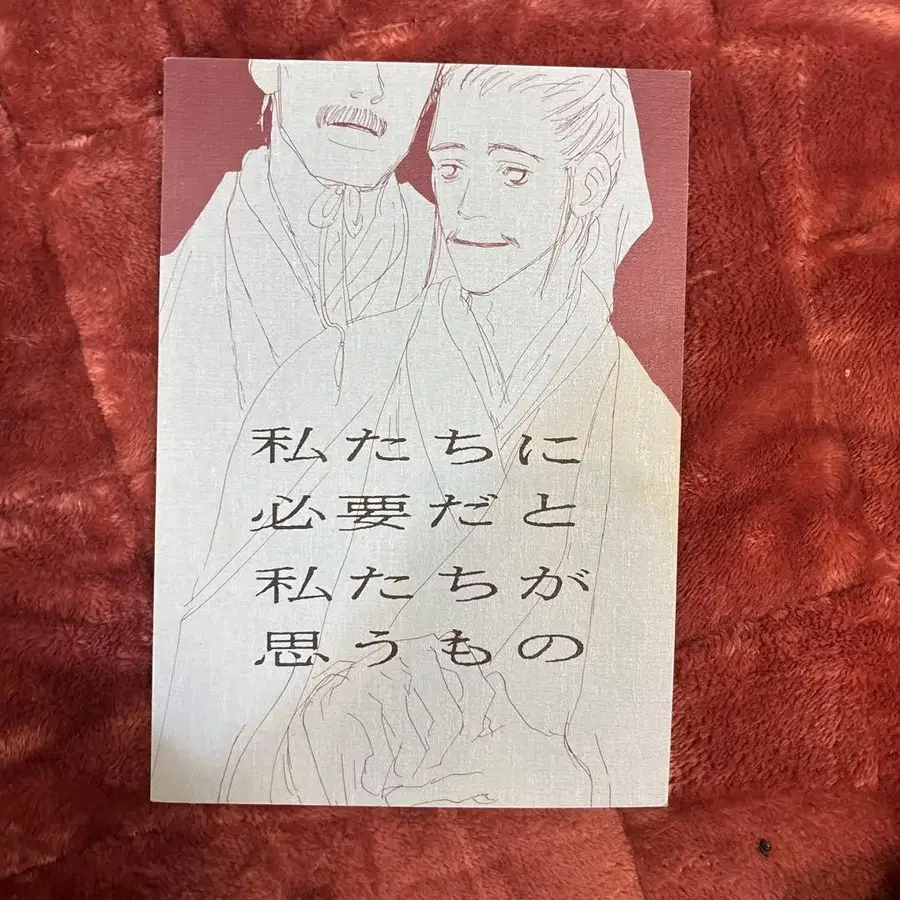 私たちに
必要だと
私たちが
思うもの